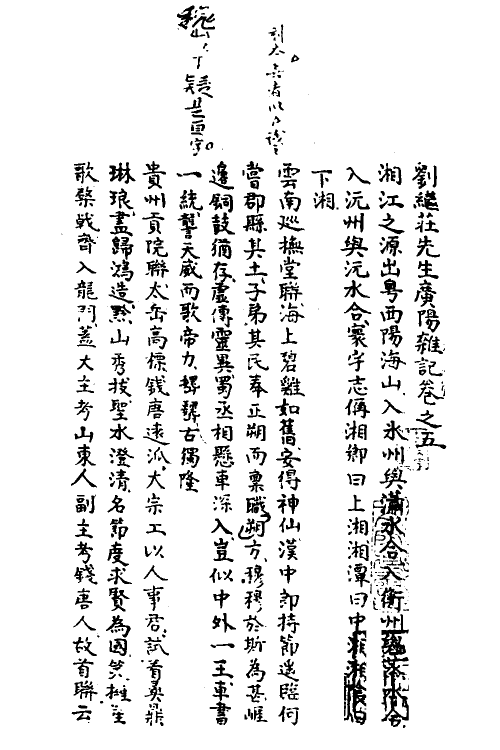 劉繼莊先生廣陽雜記卷之五
湘江之源出粵西陽海山入永州與瀟水合入衡州與蒸水合
入沅州與沅水合寰宇志偁湘鄉曰上湘湘潭曰中湘湘陰曰
下湘
雲南巡撫堂聯海上碧雞如舊安得神仙漢中郎持節遙臨何
嘗郡縣其土子弟其民奉正朔而稟職朔方穆穆於斯為甚崕
邊銅鼓猶存虛傳靈異蜀丞相懸車深入豈似中外一王車書
一統讋天威而歌帝力驛驛古獨隆
貴州貢院聯太岳高標錢唐遠派大宗工以人事君試看羹鼎
琳琅盡歸鴻造黔山秀拔聖水澄清名節度求賢為國笑擁笙
歌棨戟齊入龍門蓋大主考山東人副主考錢唐人故首聯云
疑是
字